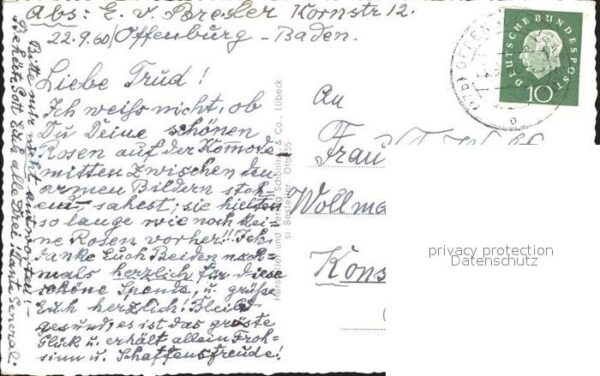 Abs: E. v. Bressler Kornstr 12.
22.9.60 Offenburg - Baden.
Liebe Trud!
Ich weiß nicht, ob
Du Deine schönen
Rosen auf der Komode
mitten zwischen den
armen Bildern steh-
en sahest; sie hielten
so lange wie noch kei-
ne Rosen vorher!! Ich
danke Euch Beiden noch-
mals herzlich für diese
schöne Spende, u. grüße
Euch herzlich! Bleibt
gesund, es ist das gröste
Glück u. erhält allein Froh-
sinn u. Schaffensfreude!
Bitte mir nicht antworten!
Behüte Gott Euch alle Drei!
An
Frau
Wollma
Kons
DEUTSCHE BUNDESPOST
10
Lübeck
privacy protection
Datenschutz